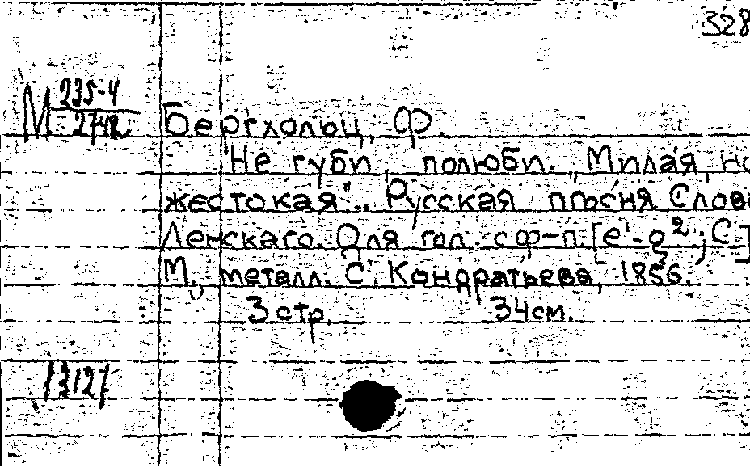 328
М 235-4
2742
Бергхольц, Ф.
"Не губи, полюби. Милая, но
жестокая". Русская песня Слова
Ленскаго. Для гол. с ф-п. [e¹-g²; C]
М., металл. С. Кондратьева, 1856.
3 стр. 34 см.
13127